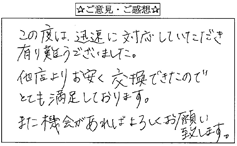 ☆ご意見・ご感想☆
この度は、迅速に対応していただき
有り難うございました。
他店よりお安く交換できたので
とても満足しております。
また機会があればよろしくお願い
致します。